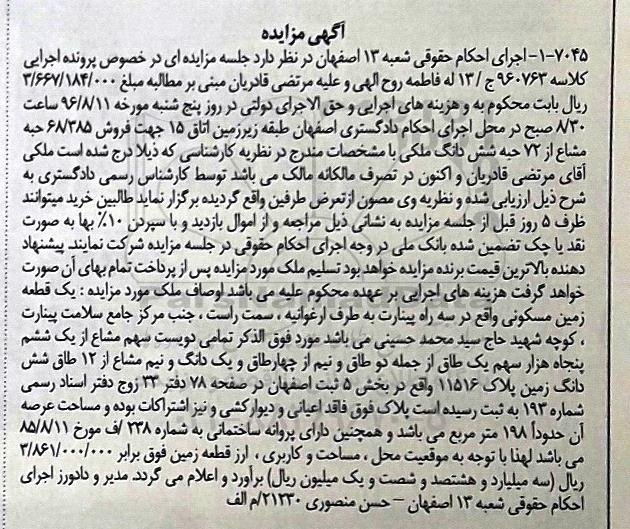 آگهی مزایده
۱-۷۰۴۵- اجرای احکام حقوقی شعبه ۱۳ اصفهان در نظر دارد جلسه مزایده ای در خصوص پرونده اجرایی
کلاسه ۹۶۰۷۶۳ ج / ۱۳ له فاطمه روح الهی و علیه مرتضی قادریان مبنی بر مطالبه مبلغ ۳/۶۶۷/۱۸۴/۰۰۰
ریال بابت محکوم به و هزینه های اجرایی و حق الاجرای دولتی در روز پنج شنبه مورخه ۹۶/۸/۱۱ ساعت
۸/۳۰ صبح در محل اجرای احکام دادگستری اصفهان طبقه زیرزمین اتاق ۱۵ جهت فروش ۶۸/۳۸۵ حبه
مشاع از ۷۲ حبه شش دانگ ملکی با مشخصات مندرج در نظریه کارشناسی که ذیلا درج شده است ملکی
آقای مرتضی قادریان و اکنون در تصرف مالکانه مالک می باشد توسط کارشناس رسمی دادگستری به
شرح ذیل ارزیابی شده و نظریه وی مصون ازتعرض طرفین واقع گردیده برگزار نماید طالبین خرید میتوانند
ظرف ۵ روز قبل از جلسه مزایده به نشانی ذیل مراجعه و از اموال بازدید و با سپردن ۱۰٪ بها به صورت
نقد یا چک تضمین شده بانک ملی در وجه اجرای احکام حقوقی در جلسه مزایده شرکت نمایند. پیشنهاد
دهنده بالاترین قیمت برنده مزایده خواهد بود تسلیم ملک مورد مزایده پس از پرداخت تمام بهای آن صورت
خواهد گرفت هزینه های اجرایی بر عهده محکوم علیه می باشد اوصاف ملک مورد مزایده : یک قطعه
زمین مسکونی واقع در سه راه پینارت به طرف ارغوانیه ، سمت راست ، جنب مرکز جامع سلامت پینارت
، کوچه شهید حاج سید محمد حسینی می باشد مورد فوق الذکر تمامی دویست سهم مشاع از یک ششم
پنجاه هزار سهم یک طاق از جمله دو طاق و نیم از چهارطاق و یک دانگ و نیم مشاع از ۱۲ طاق شش
دانگ زمین پلاک ۱۱۵۱۶ واقع در بخش ۵ ثبت اصفهان در صفحه ۷۸ دفتر ۳۳ زوج دفتر اسناد رسمی
شماره ۱۹۳ به ثبت رسیده است پلاک فوق فاقد اعیانی و دیوارکشی و نیز اشتراکات بوده و مساحت عرصه
آن حدوداً ۱۹۸ متر مربع می باشد و همچنین دارای پروانه ساختمانی به شماره ۲۳۸ /ف مورخ ۸۵/۸/۱۱
می باشد لهذا با توجه به موقعیت محل ، مساحت و کاربری ، ارز قطعه زمین فوق برابر ۳/۸۶۱/۰۰۰/۰۰۰
ریال (سه میلیارد و هشتصد و شصت و یک میلیون ریال) برآورد و اعلام می گردد. مدیر و دادورز اجرای
احکام حقوقی شعبه ۱۳ اصفهان – حسن منصوری ۲۱۲۳۰/م الف